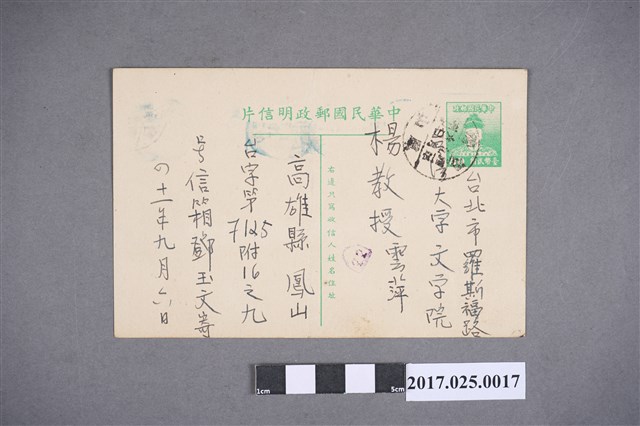 中華民國郵政明信片
台北市羅斯福路
大字文学院
楊教授雲萍
右邊只寫收信人姓名住址
22
高雄縣鳳山
台字第7125附16之九
号信箱鄧玉文寄
四十一年九月六日
1cm
5cm
2017.025.0017